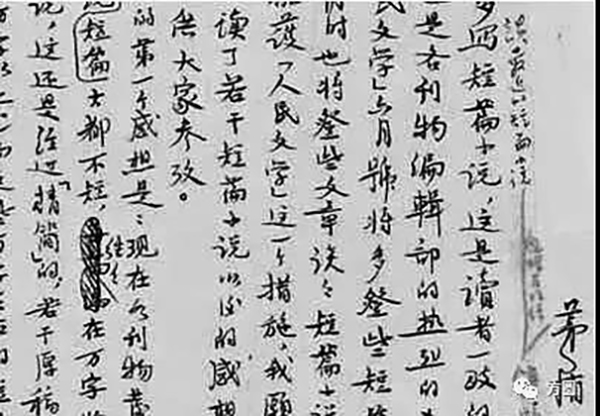 茅盾
多写短篇小说,这是读者一致的
是各刊物编辑部的热烈的
民文学」六月號将多登些短篇
时也将登些文章谈谈短篇小说
护「人民文学」这一个措施,我願
读了若干短篇小说以后的感想
供大家参攷。
的第一个感想是:现在各刊物发
短篇大都不短,往往在万字
说,这还是经过「精简」的,若干原稿